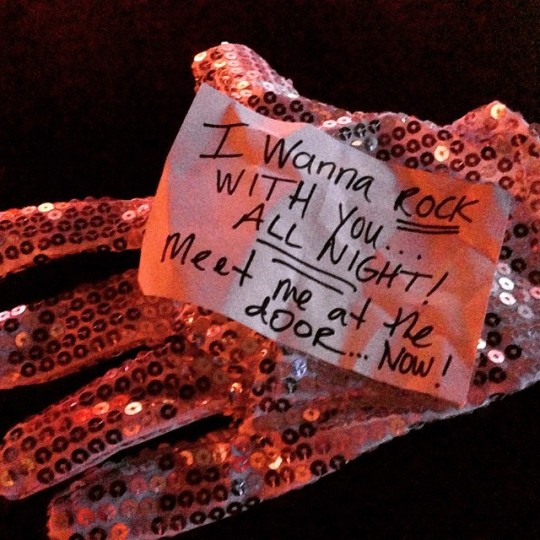 I Wanna ROCK
WITH YOU...
ALL NIGHT!
Meet me at the
dOOR... NOW!